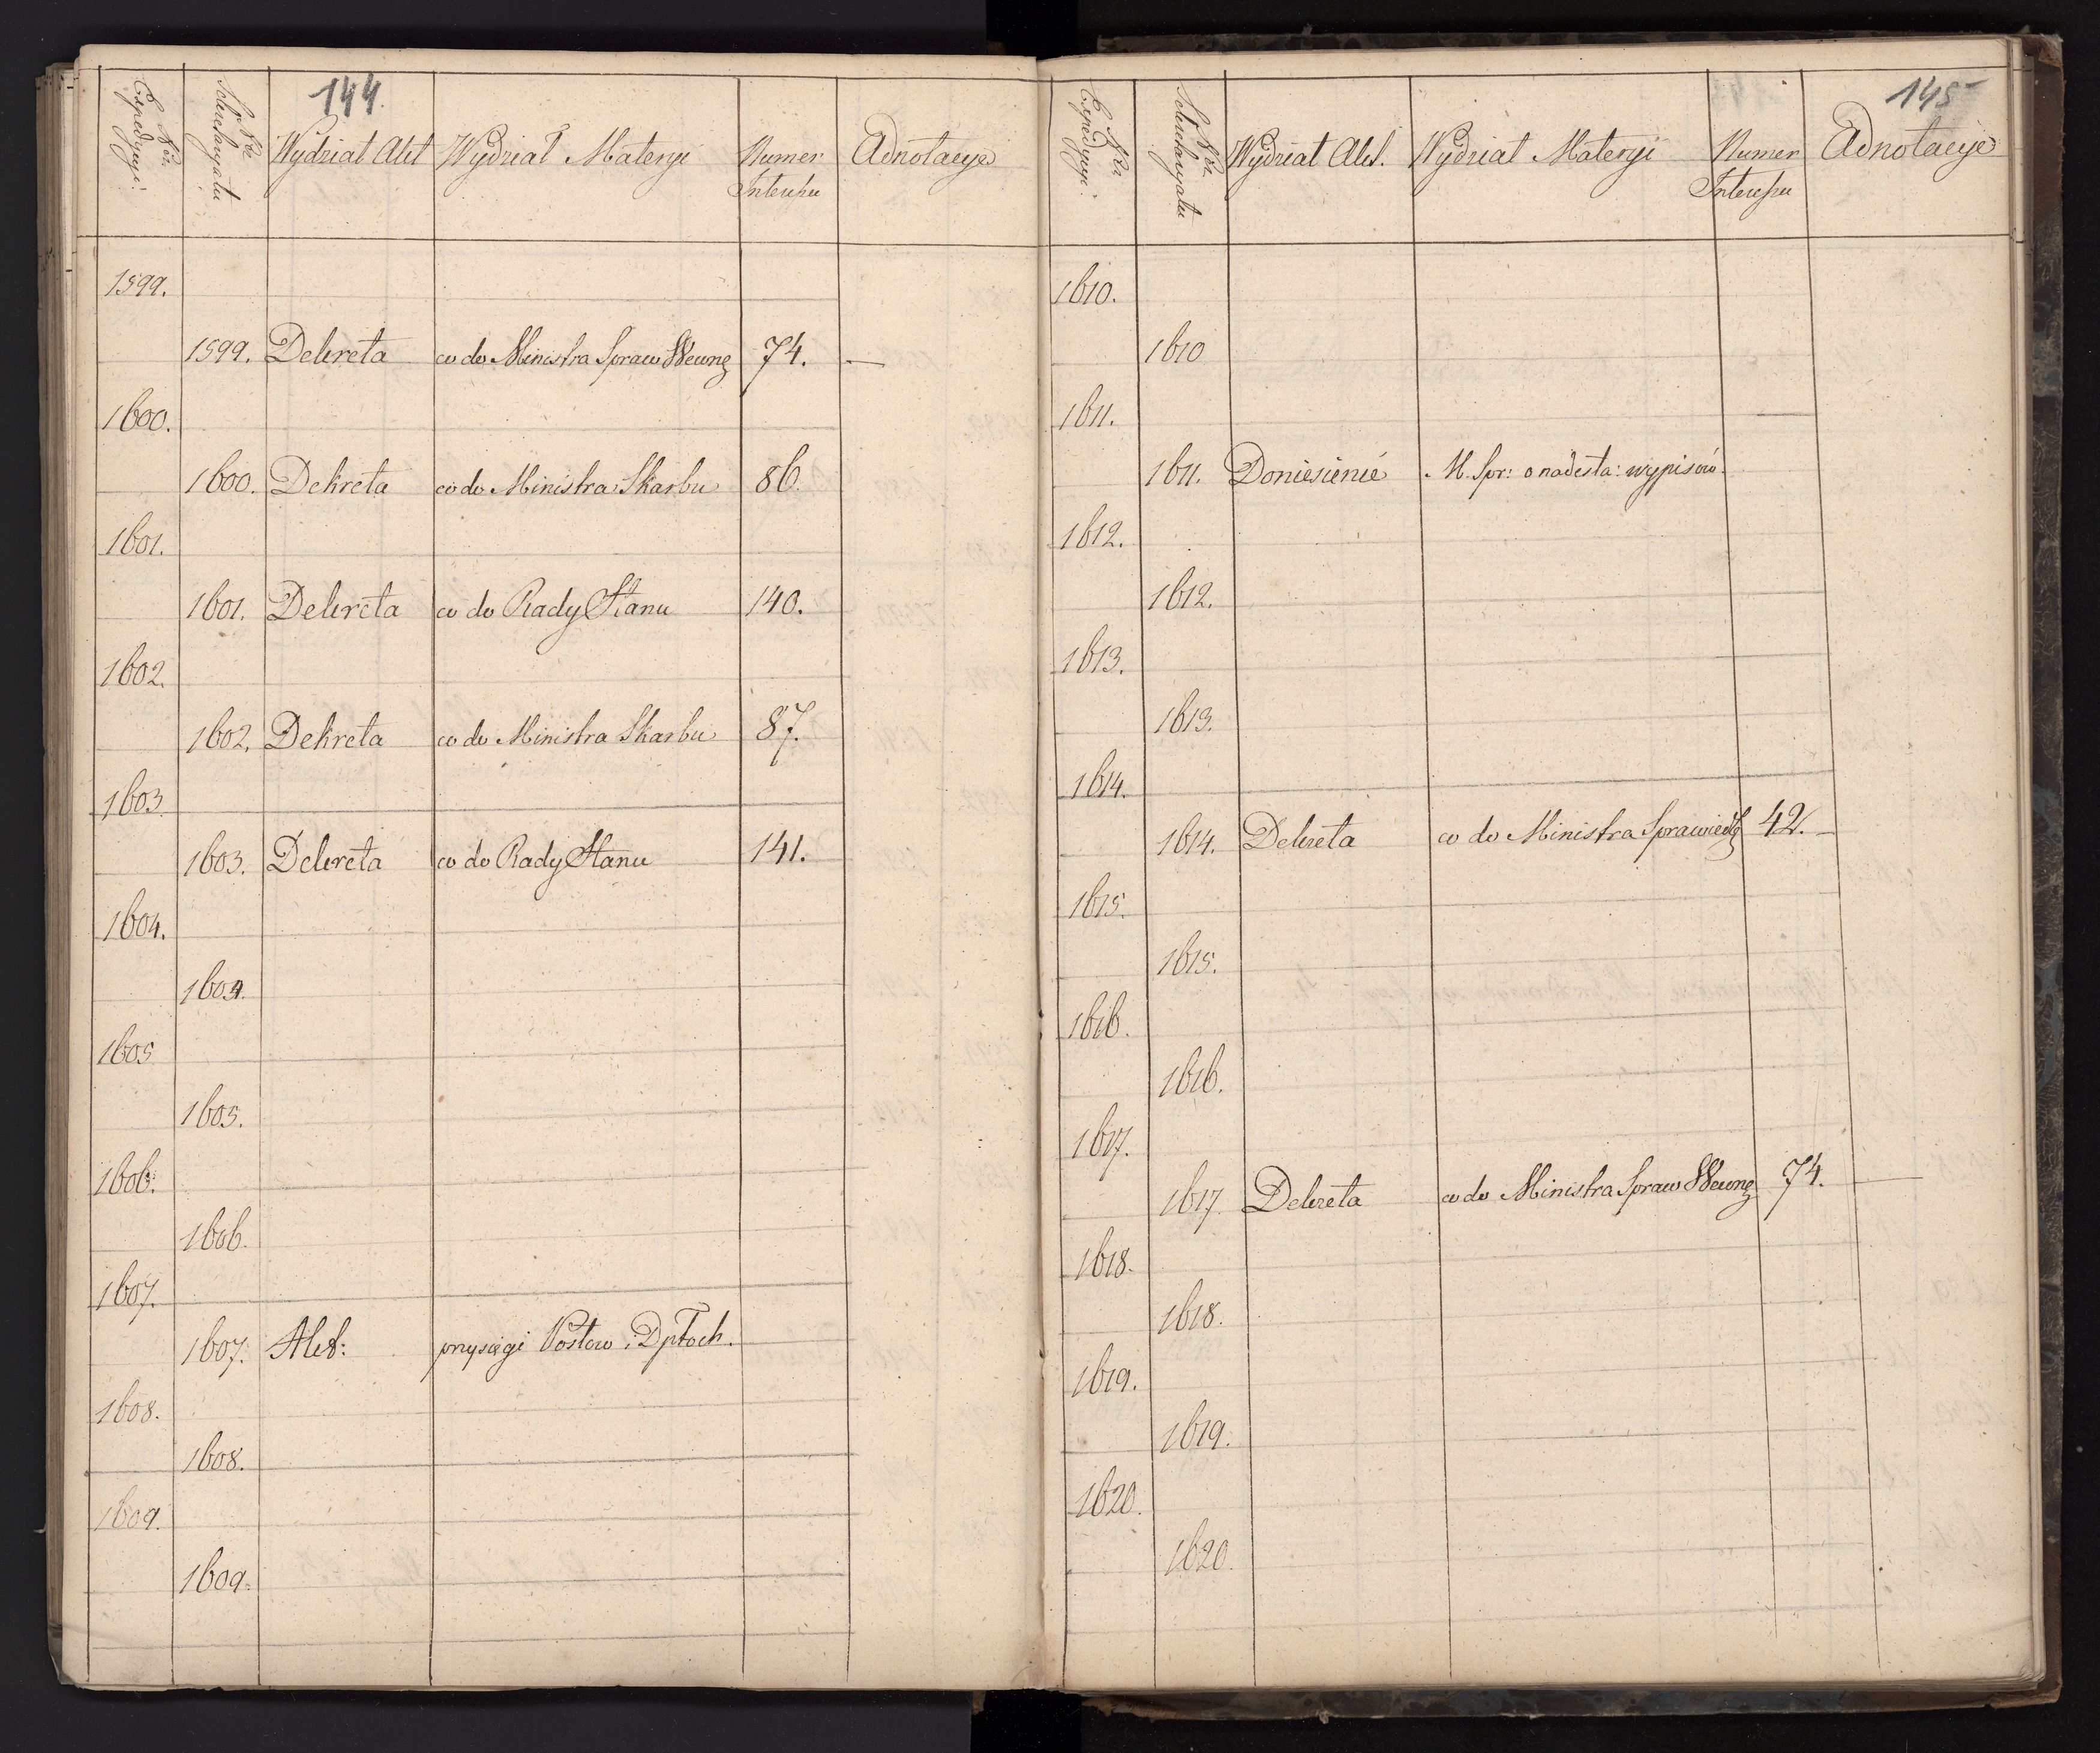 144.
Nro Expedycyi.
Nro Sekretaryatu
Wydział Akt
Wydział Materyi
Numer Interessu
Adnotacye
1599.
1599. Dekreta co do Ministra Spraw Wewng 74. —
1600.
1600. Dekreta co do Ministra Skarbu 86.
1601.
1601. Dekreta co do Rady Stanu 140.
1602.
1602. Dekreta co do Ministra Skarbu 87.
1603.
1603. Dekreta co do Rady Stanu 141.
1604.
1604.
1605
1605.
1606.
1606.
1607.
1607. Akt: przysięgi Posłow i Dptoch.
1608.
1608.
1609.
1609.
145
Nro Expedycyi.
Nro Sekretaryatu
Wydział Akt.
Wydział Materyi
Numer Interessu
Adnotacye
1610.
1610
1611.
1611. Doniesienie M. Spr: o nadesła: wypisów.
1612.
1612.
1613.
1613.
1614.
1614. Dekreta co do Ministra Sprawiedg 42. —
1615.
1615.
1616.
1616.
1617.
1617. Dekreta co do Ministra Spraw Wewng 74. —
1618.
1618.
1619.
1619.
1620.
1620.